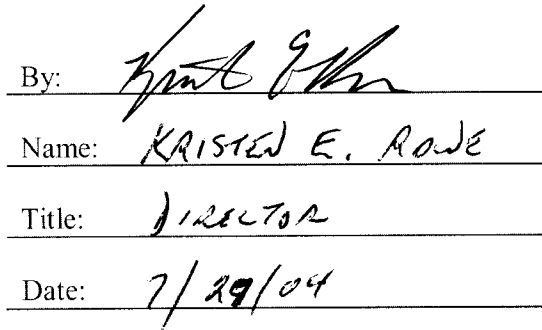 By:
Name: KRISTEN E. ROWE
Title: DIRECTOR
Date: 7/29/04